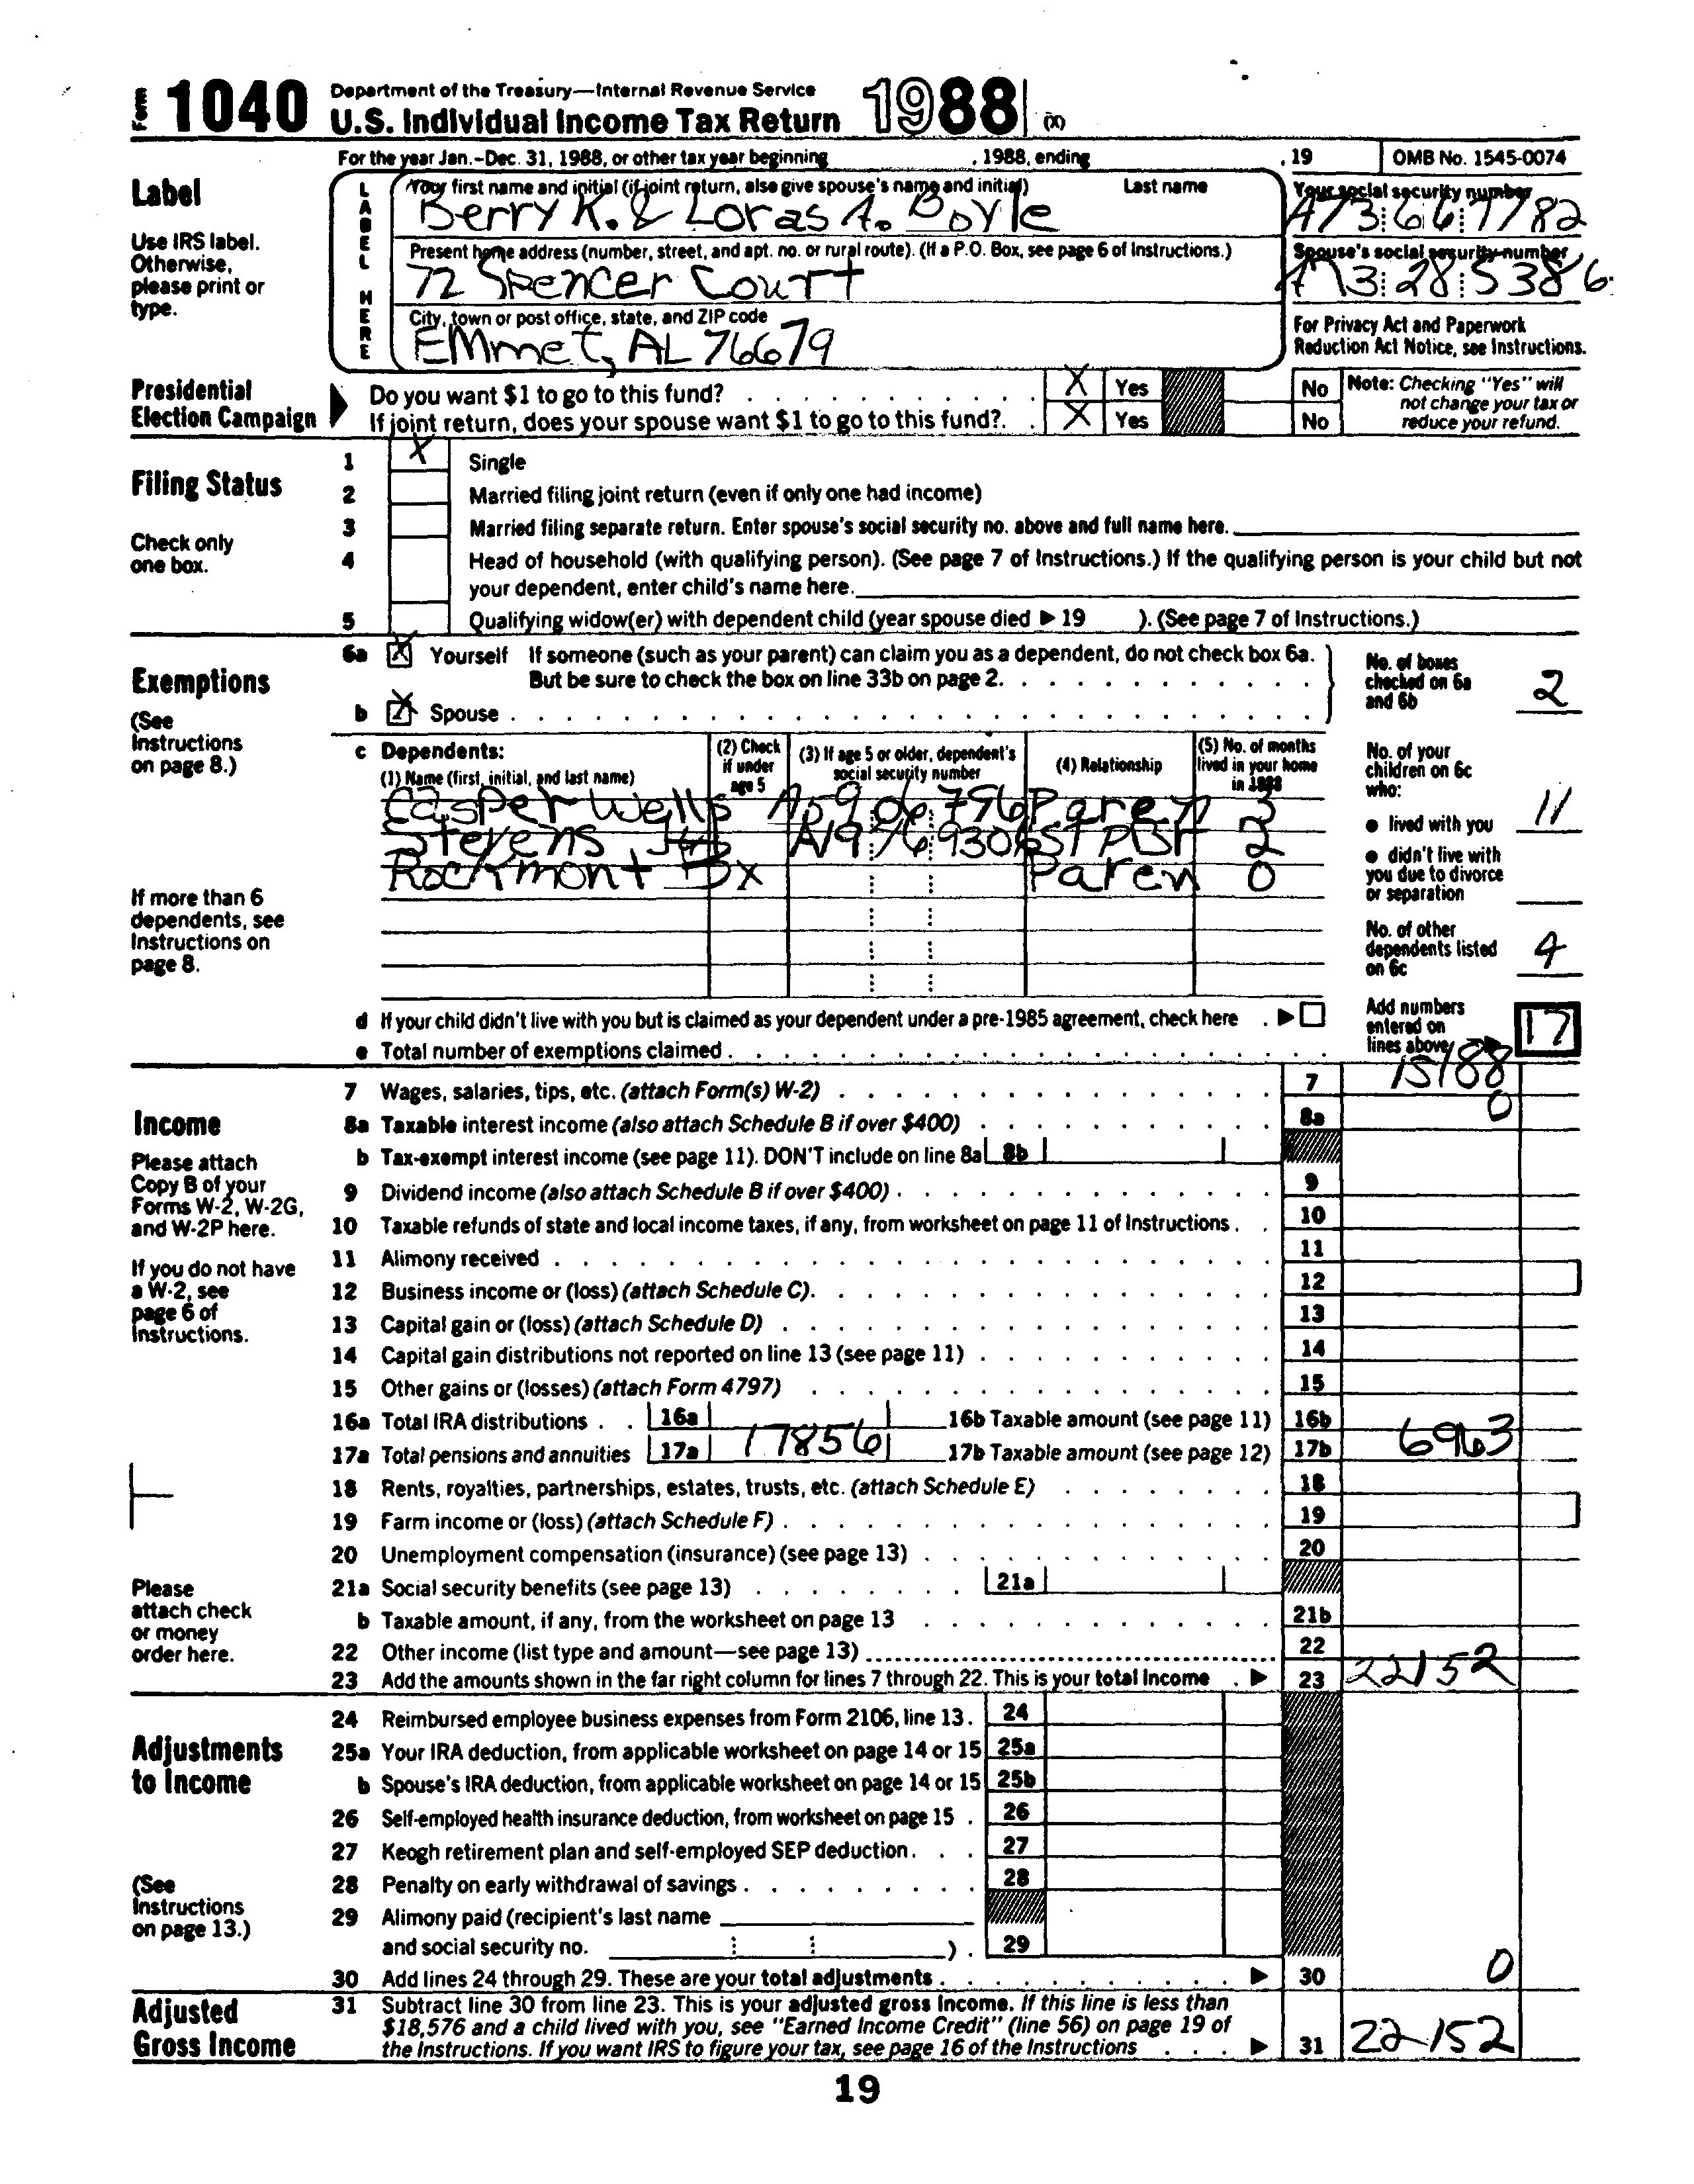 Form 1040 Department of the Treasury—Internal Revenue Service
U.S. Individual Income Tax Return 1988 (X)
For the year Jan.-Dec. 31, 1988, or other tax year beginning , 1988, ending , 19 OMB No. 1545-0074
Label
Use IRS label.
Otherwise,
please print or
type.
LABEL HERE
Your first name and initial (if joint return, also give spouse's name and initial) Last name
Berry K. & Loras A. Boyle
Your social security number
Present home address (number, street, and apt. no. or rural route). (If a P.O. Box, see page 6 of Instructions.)
72 Spencer Court
Spouse's social security number
A13 28 5386
City, town or post office, state, and ZIP code
Emmet, AL 76679
For Privacy Act and Paperwork
Reduction Act Notice, see Instructions.
Presidential
Election Campaign
Do you want $1 to go to this fund? X Yes No
If joint return, does your spouse want $1 to go to this fund? X Yes No
Note: Checking "Yes" will
not change your tax or
reduce your refund.
Filing Status
Check only
one box.
1 X Single
2 Married filing joint return (even if only one had income)
3 Married filing separate return. Enter spouse's social security no. above and full name here.
4 Head of household (with qualifying person). (See page 7 of Instructions.) If the qualifying person is your child but not
your dependent, enter child's name here.
5 Qualifying widow(er) with dependent child (year spouse died ▶ 19 ). (See page 7 of Instructions.)
Exemptions
(See
Instructions
on page 8.)
If more than 6
dependents, see
Instructions on
page 8.
6a X Yourself If someone (such as your parent) can claim you as a dependent, do not check box 6a.
But be sure to check the box on line 33b on page 2.
b X Spouse
No. of boxes
checked on 6a
and 6b 2
c Dependents:
(1) Name (first, initial, and last name)
(2) Check
if under
age 5
(3) If age 5 or older, dependent's
social security number
(4) Relationship
(5) No. of months
lived in your home
in 1988
Casper Wells Paren 3
Stevens 2
Rockmont Paren 0
No. of your
children on 6c
who:
● lived with you 11
● didn't live with
you due to divorce
or separation
No. of other
dependents listed
on 6c 4
d If your child didn't live with you but is claimed as your dependent under a pre-1985 agreement, check here ▶
e Total number of exemptions claimed
Add numbers
entered on
lines above ▶ 17
Income
Please attach
Copy B of your
Forms W-2, W-2G,
and W-2P here.
If you do not have
a W-2, see
page 6 of
Instructions.
Please
attach check
or money
order here.
7 Wages, salaries, tips, etc. (attach Form(s) W-2) 7 15188
8a Taxable interest income (also attach Schedule B if over $400) 8a 0
b Tax-exempt interest income (see page 11). DON'T include on line 8a 8b
9 Dividend income (also attach Schedule B if over $400) 9
10 Taxable refunds of state and local income taxes, if any, from worksheet on page 11 of Instructions 10
11 Alimony received 11
12 Business income or (loss) (attach Schedule C) 12
13 Capital gain or (loss) (attach Schedule D) 13
14 Capital gain distributions not reported on line 13 (see page 11) 14
15 Other gains or (losses) (attach Form 4797) 15
16a Total IRA distributions 16a 16b Taxable amount (see page 11) 16b
17a Total pensions and annuities 17a 17856 17b Taxable amount (see page 12) 17b 6963
18 Rents, royalties, partnerships, estates, trusts, etc. (attach Schedule E) 18
19 Farm income or (loss) (attach Schedule F) 19
20 Unemployment compensation (insurance) (see page 13) 20
21a Social security benefits (see page 13) 21a
b Taxable amount, if any, from the worksheet on page 13 21b
22 Other income (list type and amount—see page 13) 22
23 Add the amounts shown in the far right column for lines 7 through 22. This is your total income ▶ 23 22152
Adjustments
to Income
(See
Instructions
on page 13.)
24 Reimbursed employee business expenses from Form 2106, line 13. 24
25a Your IRA deduction, from applicable worksheet on page 14 or 15 25a
b Spouse's IRA deduction, from applicable worksheet on page 14 or 15 25b
26 Self-employed health insurance deduction, from worksheet on page 15 26
27 Keogh retirement plan and self-employed SEP deduction 27
28 Penalty on early withdrawal of savings 28
29 Alimony paid (recipient's last name
and social security no. ) 29
30 Add lines 24 through 29. These are your total adjustments ▶ 30 0
Adjusted
Gross Income
31 Subtract line 30 from line 23. This is your adjusted gross income. If this line is less than
$18,576 and a child lived with you, see "Earned Income Credit" (line 56) on page 19 of
the Instructions. If you want IRS to figure your tax, see page 16 of the Instructions ▶ 31 22152
19